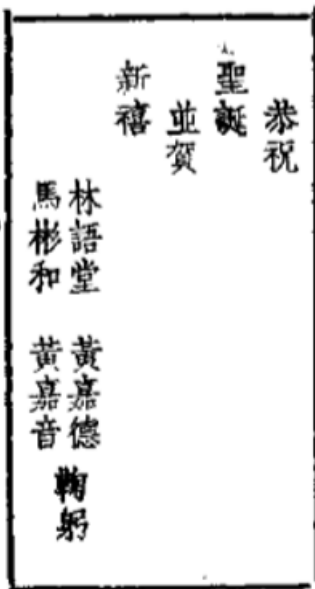 恭祝
聖誕
並賀
新禧
林語堂　黃嘉德
馬彬和　黃嘉音
鞠躬